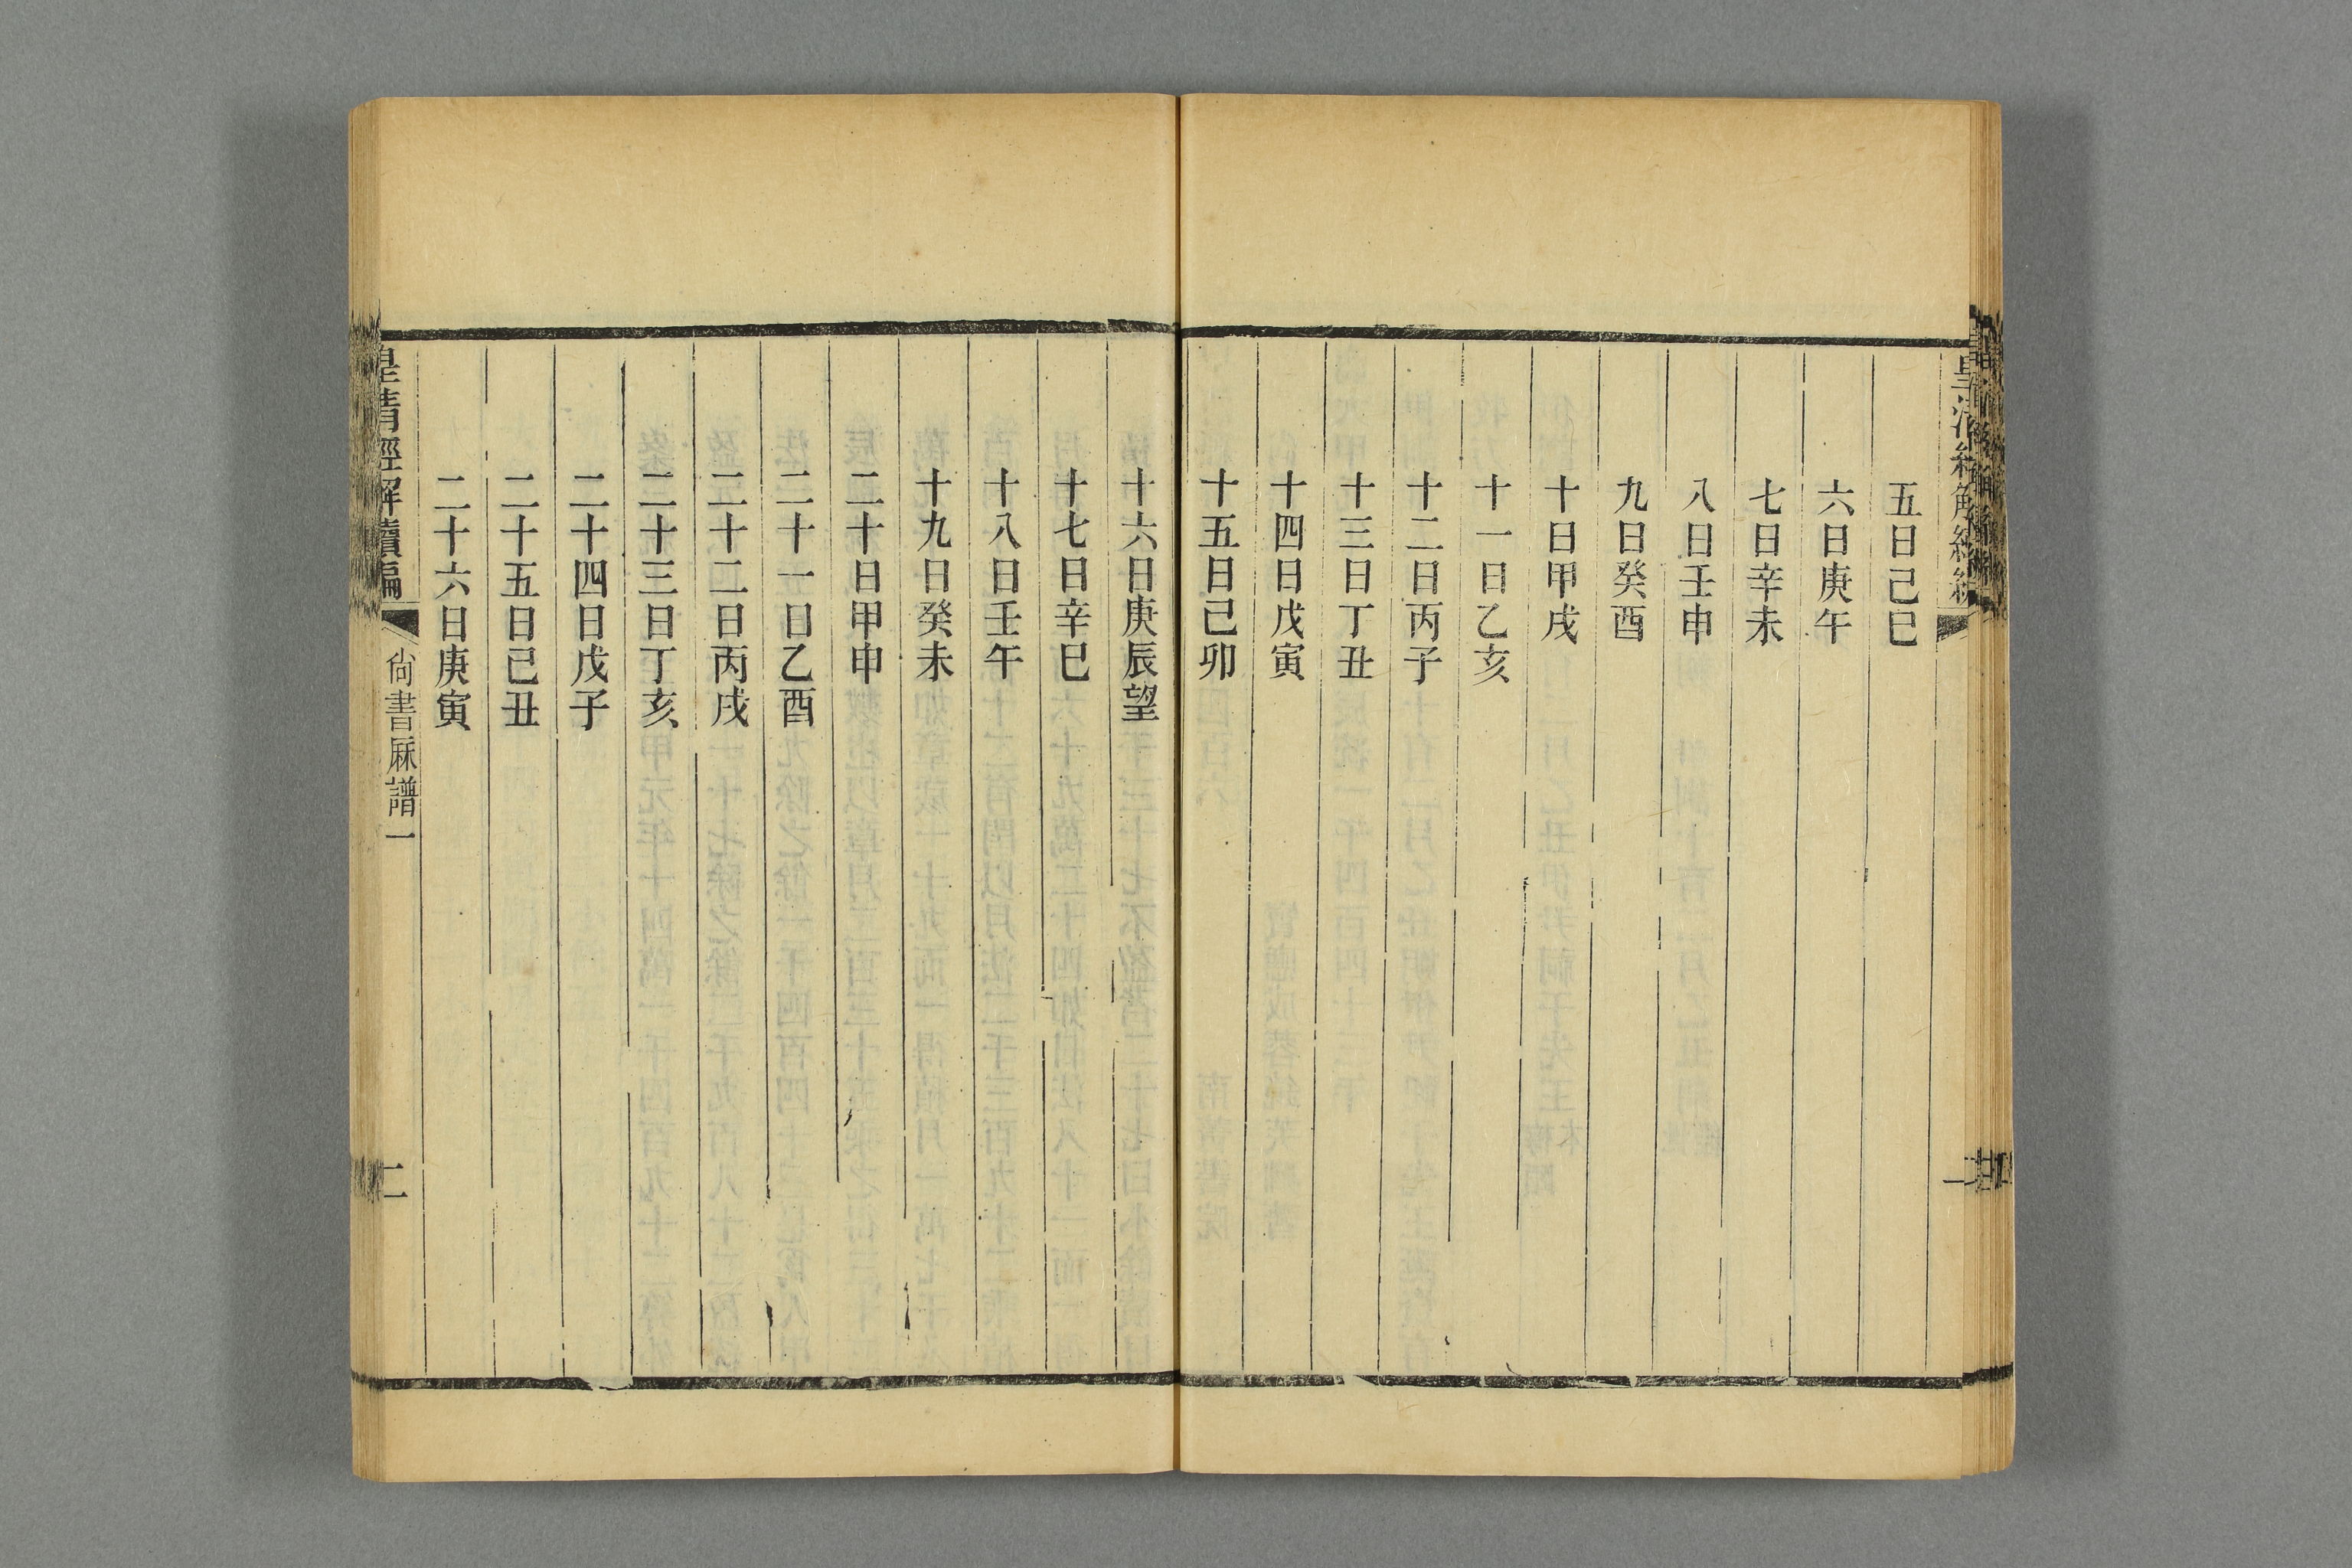 五日己巳
六日庚午
七日辛未
八日壬申
九日癸酉
十日甲戌
十一日乙亥
十二日丙子
十三日丁丑
十四日戊寅
十五日己卯
十六日庚辰望
十七日辛巳
十八日壬午
十九日癸未
二十日甲申
二十一日乙酉
二十二日丙戌
二十三日丁亥
二十四日戊子
二十五日己丑
二十六日庚寅
皇清經解續編
尙書厤譜一
二